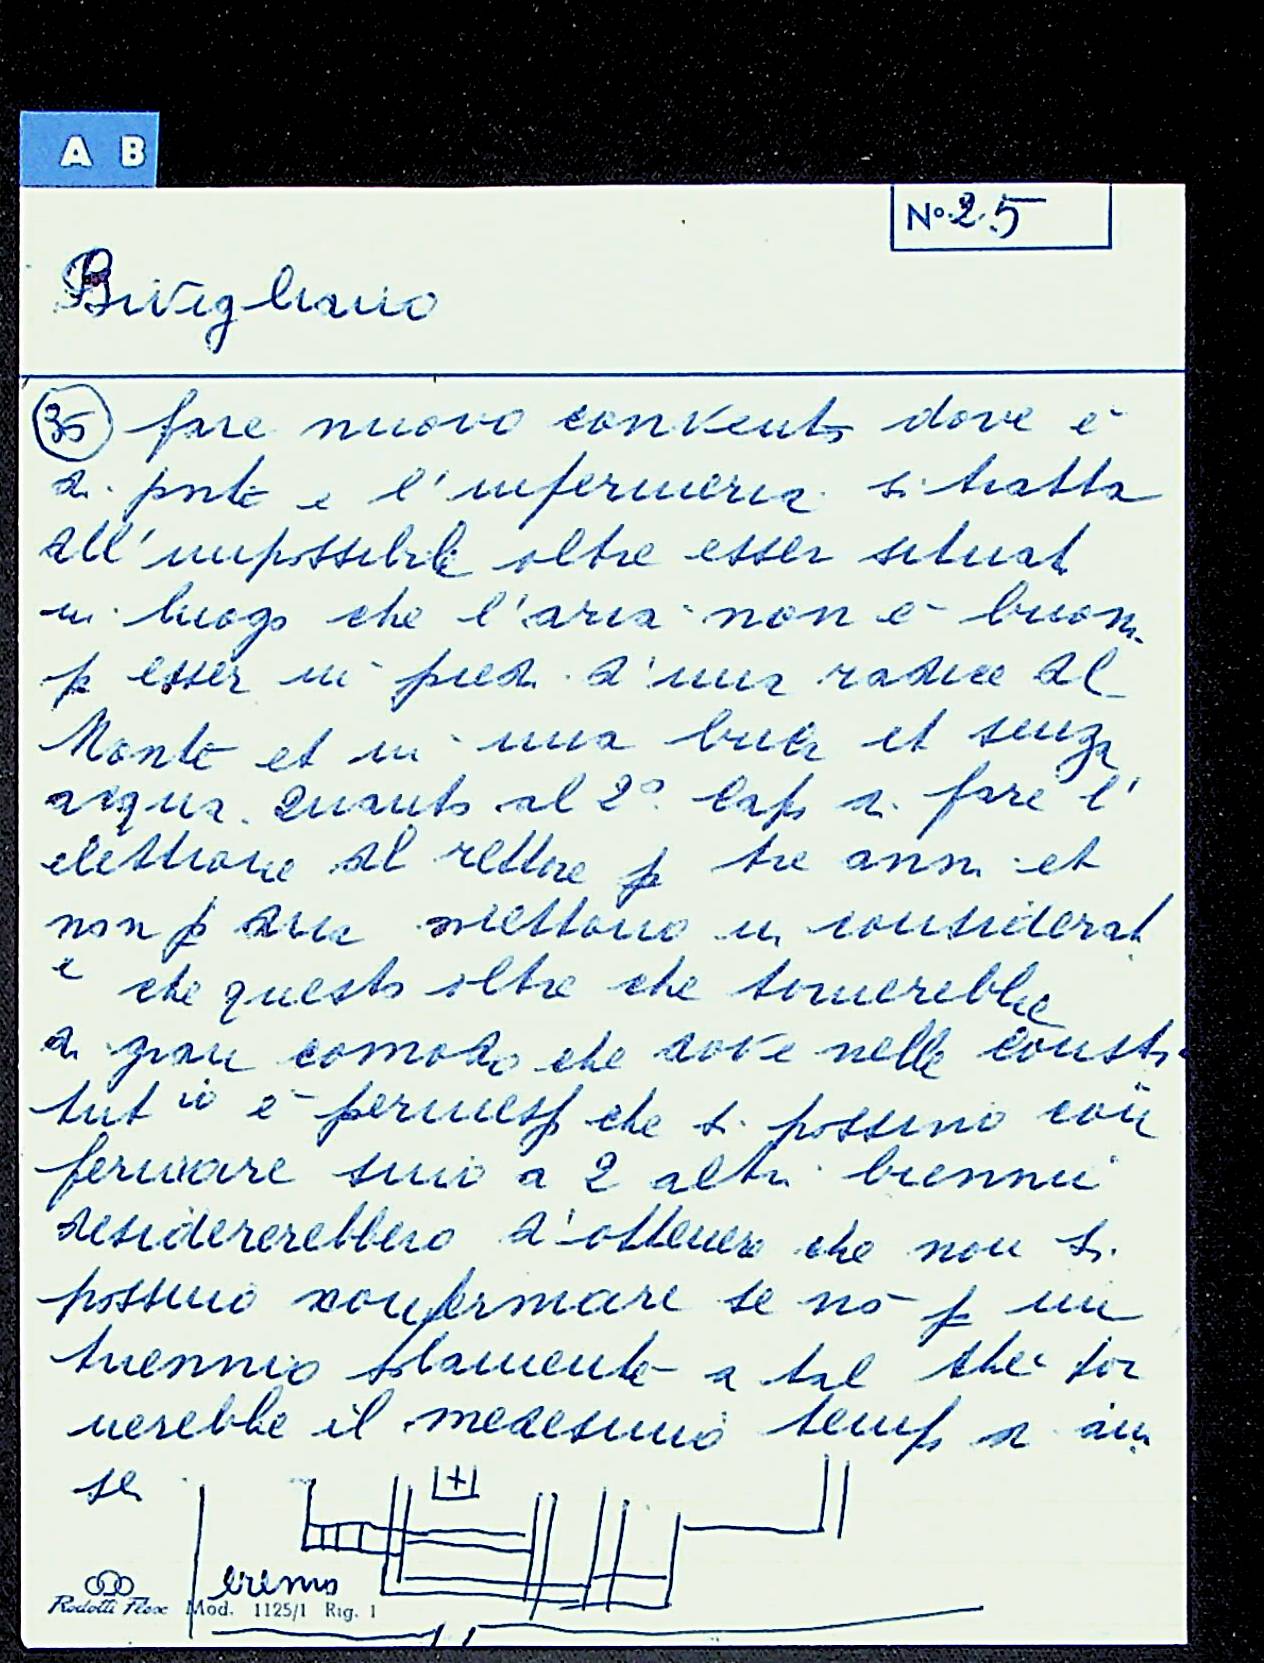 A B
N° 25
Bivigliano
35 fare nuovo convento dove è
di pnte e l'infermeria si tratta
dell'impossibile oltre esser situat
in luogo che l'aria non è buon
p esser in piedi d'una radice del
Monte et in una buca et senza
acqua. Quanto al 2° capo di fare l'
elettione del rettore p tre anni et
non p due mettono in considerat
e che questo oltre che tornerebbe
di gran comodo che dove nelle consti
tut io è permesso che si possino con
fermare sino a 2 altri biennii
desidererebbero d'ottenere che non si
possino confermare se nō p un
triennio solamente a tal che tor
nerebbe il medesimo tempo di an
sei
eremo
Rodolli Flex Mod. 1125/1 Rig. 1